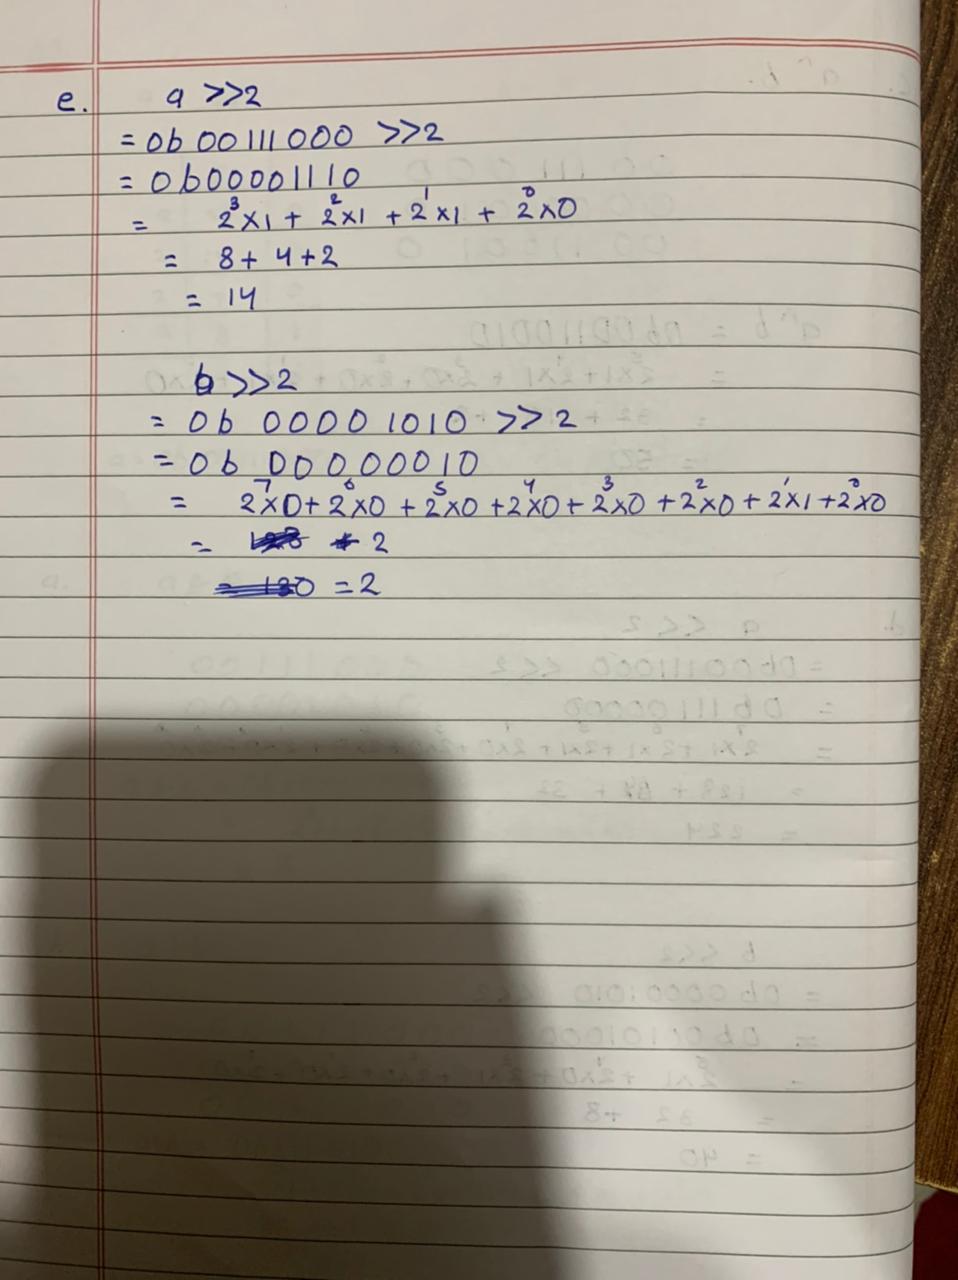 e. a >>2
= 0b 00111000 >>2
= 0b00001110
= 2³x1 + 2²x1 + 2¹x1 + 2⁰x0
= 8+ 4+2
= 14
b >>2
= 0b 00001010 >>2
= 0b 00000010
= 2⁷x0+ 2⁶x0 + 2⁵x0 +2⁴x0+ 2³x0 +2²x0 +2¹x1 +2⁰x0
= 2
= 2